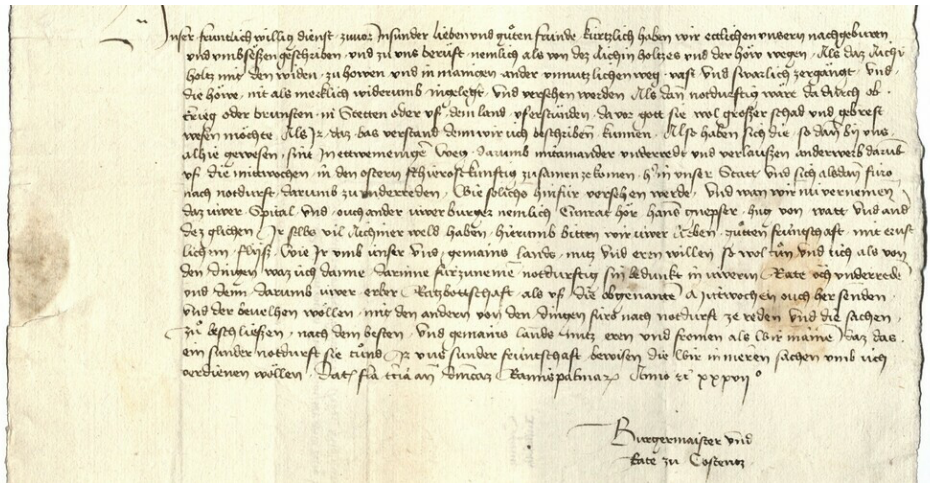 Unser fruntlich willig dienst zuvor Insunder lieben und guͦten frunde kurtzlich haben wir ettlichen unsern nachgeburen
und umbseßen geschriben und zu uns beruft nemlich als von dez Aichin holtzes und der höw wegen Als daz Aichi
holtz mit den widen zu howen und in mangen ander unnutzlichen weg vast und swarlich zergangt und
die höwe nit als merklich widerumb ingelegt und versehen werden Als dan notdurftig wäre da durch ob
krieg oder brunsten in Stetten oder uf dem land uferstünden da vor gott sie wol großer schad und gebrest
wesen möchte Als Ir daz bas verstand denn wir uch beschriben kunnen Also haben sich die so dan bÿ uns
alhie gewesen sint In ettwemenigem weg darumb mitainander underredt und verlaußen anderwerb darumb
uf die mitwochen in den ostern schierost kunftig zusamen ze komen hie in unser Statt und sich alsdan furo
nach notdurft darumb zu underreden Wie solichs hinfür versehen werde Und wan wir nu vernemen
daz uwer Spital und ouch ander uwer burger nemlich Cunrat hör hans gnepser hug von watt und and
dez glichen Ir selbs vil Aichiner weld haben hierumb bitten wir uwer lieben guͦtten fruntschaft mit ernst
lichem flÿß Wie Ir umb unser und gemains lands nutz und eren willen so wol tuͤn und uch als von
den dingen waz uch danne darinne fürzuneme notdurftig sin bedunkt in uwerm Rate och underrede
und denn darumb uwer erber Ratzbottschaft als uf die obgenanten Mitwochen ouch her senden
und der bevelhen wöllen mit den andern von den dingen füro nach notdurft ze reden und die sachen
zuͦ beschließen nach dem besten und gemains lands nutz eren und fromen als wir mainen daz das
ein sunder notdurft sie tuͦnd Ir uns sunder fruntschaft bewisen die wir in meren sachen umb uch
verdienen wöllen Dat feria tercia an dominicam Ramispalmarum Anno etc xxxvii°
Burgermaister und
Rate zu Costentz